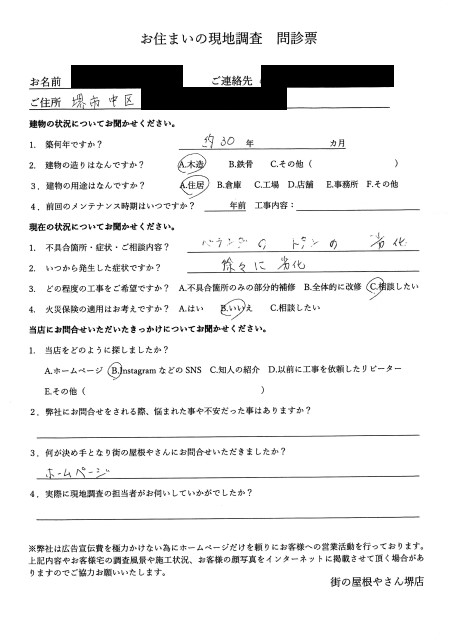 お住まいの現地調査　問診票
お名前　ご連絡先（
ご住所　堺市中区
建物の状況についてお聞かせください。
1.　築何年ですか？　約30　年　カ月
2.　建物の造りはなんですか？　A.木造　B.鉄骨　C.その他（　）
3．建物の用途はなんですか？　A.住居　B.倉庫　C.工場　D.店舗　E.事務所　F.その他
4．前回のメンテナンス時期はいつですか？　年前　工事内容：
現在の状況についてお聞かせください。
1.　不具合箇所・症状・ご相談内容？　の　トタンの　劣化
2.　いつから発生した症状ですか？　徐々に　劣化
3.　どの程度の工事をご希望ですか？　A.不具合箇所のみの部分的補修　B.全体的に改修　C.相談したい
4.　火災保険の適用はお考えですか？　A.はい　B.いいえ　C.相談したい
当店にお問合せいただいたきっかけについてお聞かせください。
1.　当店をどのように探しましたか？
A.ホームページ　B.Instagram などの SNS　C.知人の紹介　D.以前に工事を依頼したリピーター
E.その他（　）
2．弊社にお問合せをされる際、悩まれた事や不安だった事はありますか？
3．何が決め手となり街の屋根やさんにお問合せいただきましたか？
ホームページ
4．実際に現地調査の担当者がお伺いしていかがでしたか？
※弊社は広告宣伝費を極力かけない為にホームページだけを頼りにお客様への営業活動を行っております。
上記内容やお客様宅の調査風景や施工状況、お客様の顔写真をインターネットに掲載させて頂く場合が
ありますのでご協力お願いいたします。
街の屋根やさん堺店